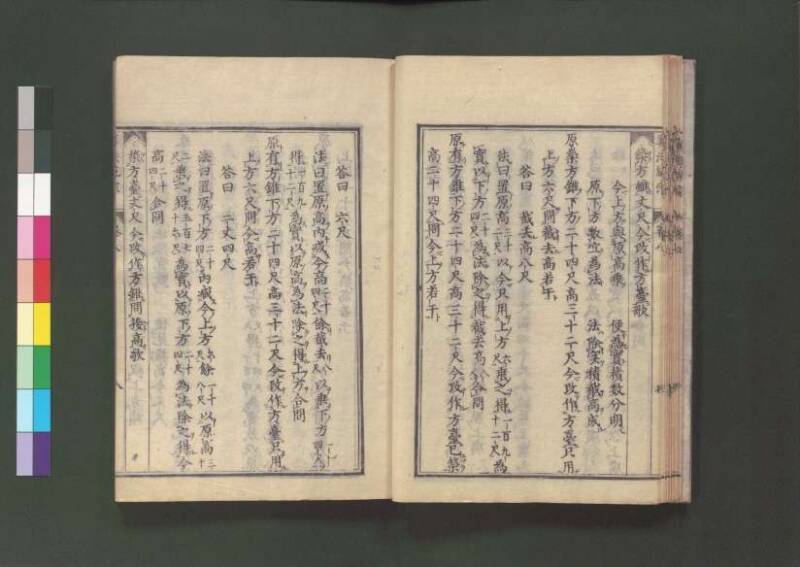 築方錐丈尺今改作方臺歌
今上方與原高乗　便為實積數分明
原下方數竝為法　法除實積截高成
原築方錐下方二十四尺高三十二尺今改作方臺只用
上方六尺問截去高若干
答曰　截去高八尺
法曰置原高三十二尺以今只用上方六尺乗之得一百九十二尺為
實以下方二十四尺為法除之得截去高八尺合問
原有方錐下方二十四尺高三十二尺今改作方臺已築
高二十四尺問今上方若干
答曰　六尺
法曰置原高内減今高二十四尺餘截去八尺以乗下方二十四尺
得一百九十二尺為實以原高為法除之得上方合問
原有方錐下方二十四尺高三十二尺今改作方臺只用
上方六尺問今高若干
答曰　二丈四尺
法曰置原下方二十四尺内減今上方六尺餘一十八尺以原高三十
二尺乗之得五百七十六尺為實以原下方二十四尺為法除之得今
高二十四尺合問
築方臺丈尺今改作方錐問接高歌